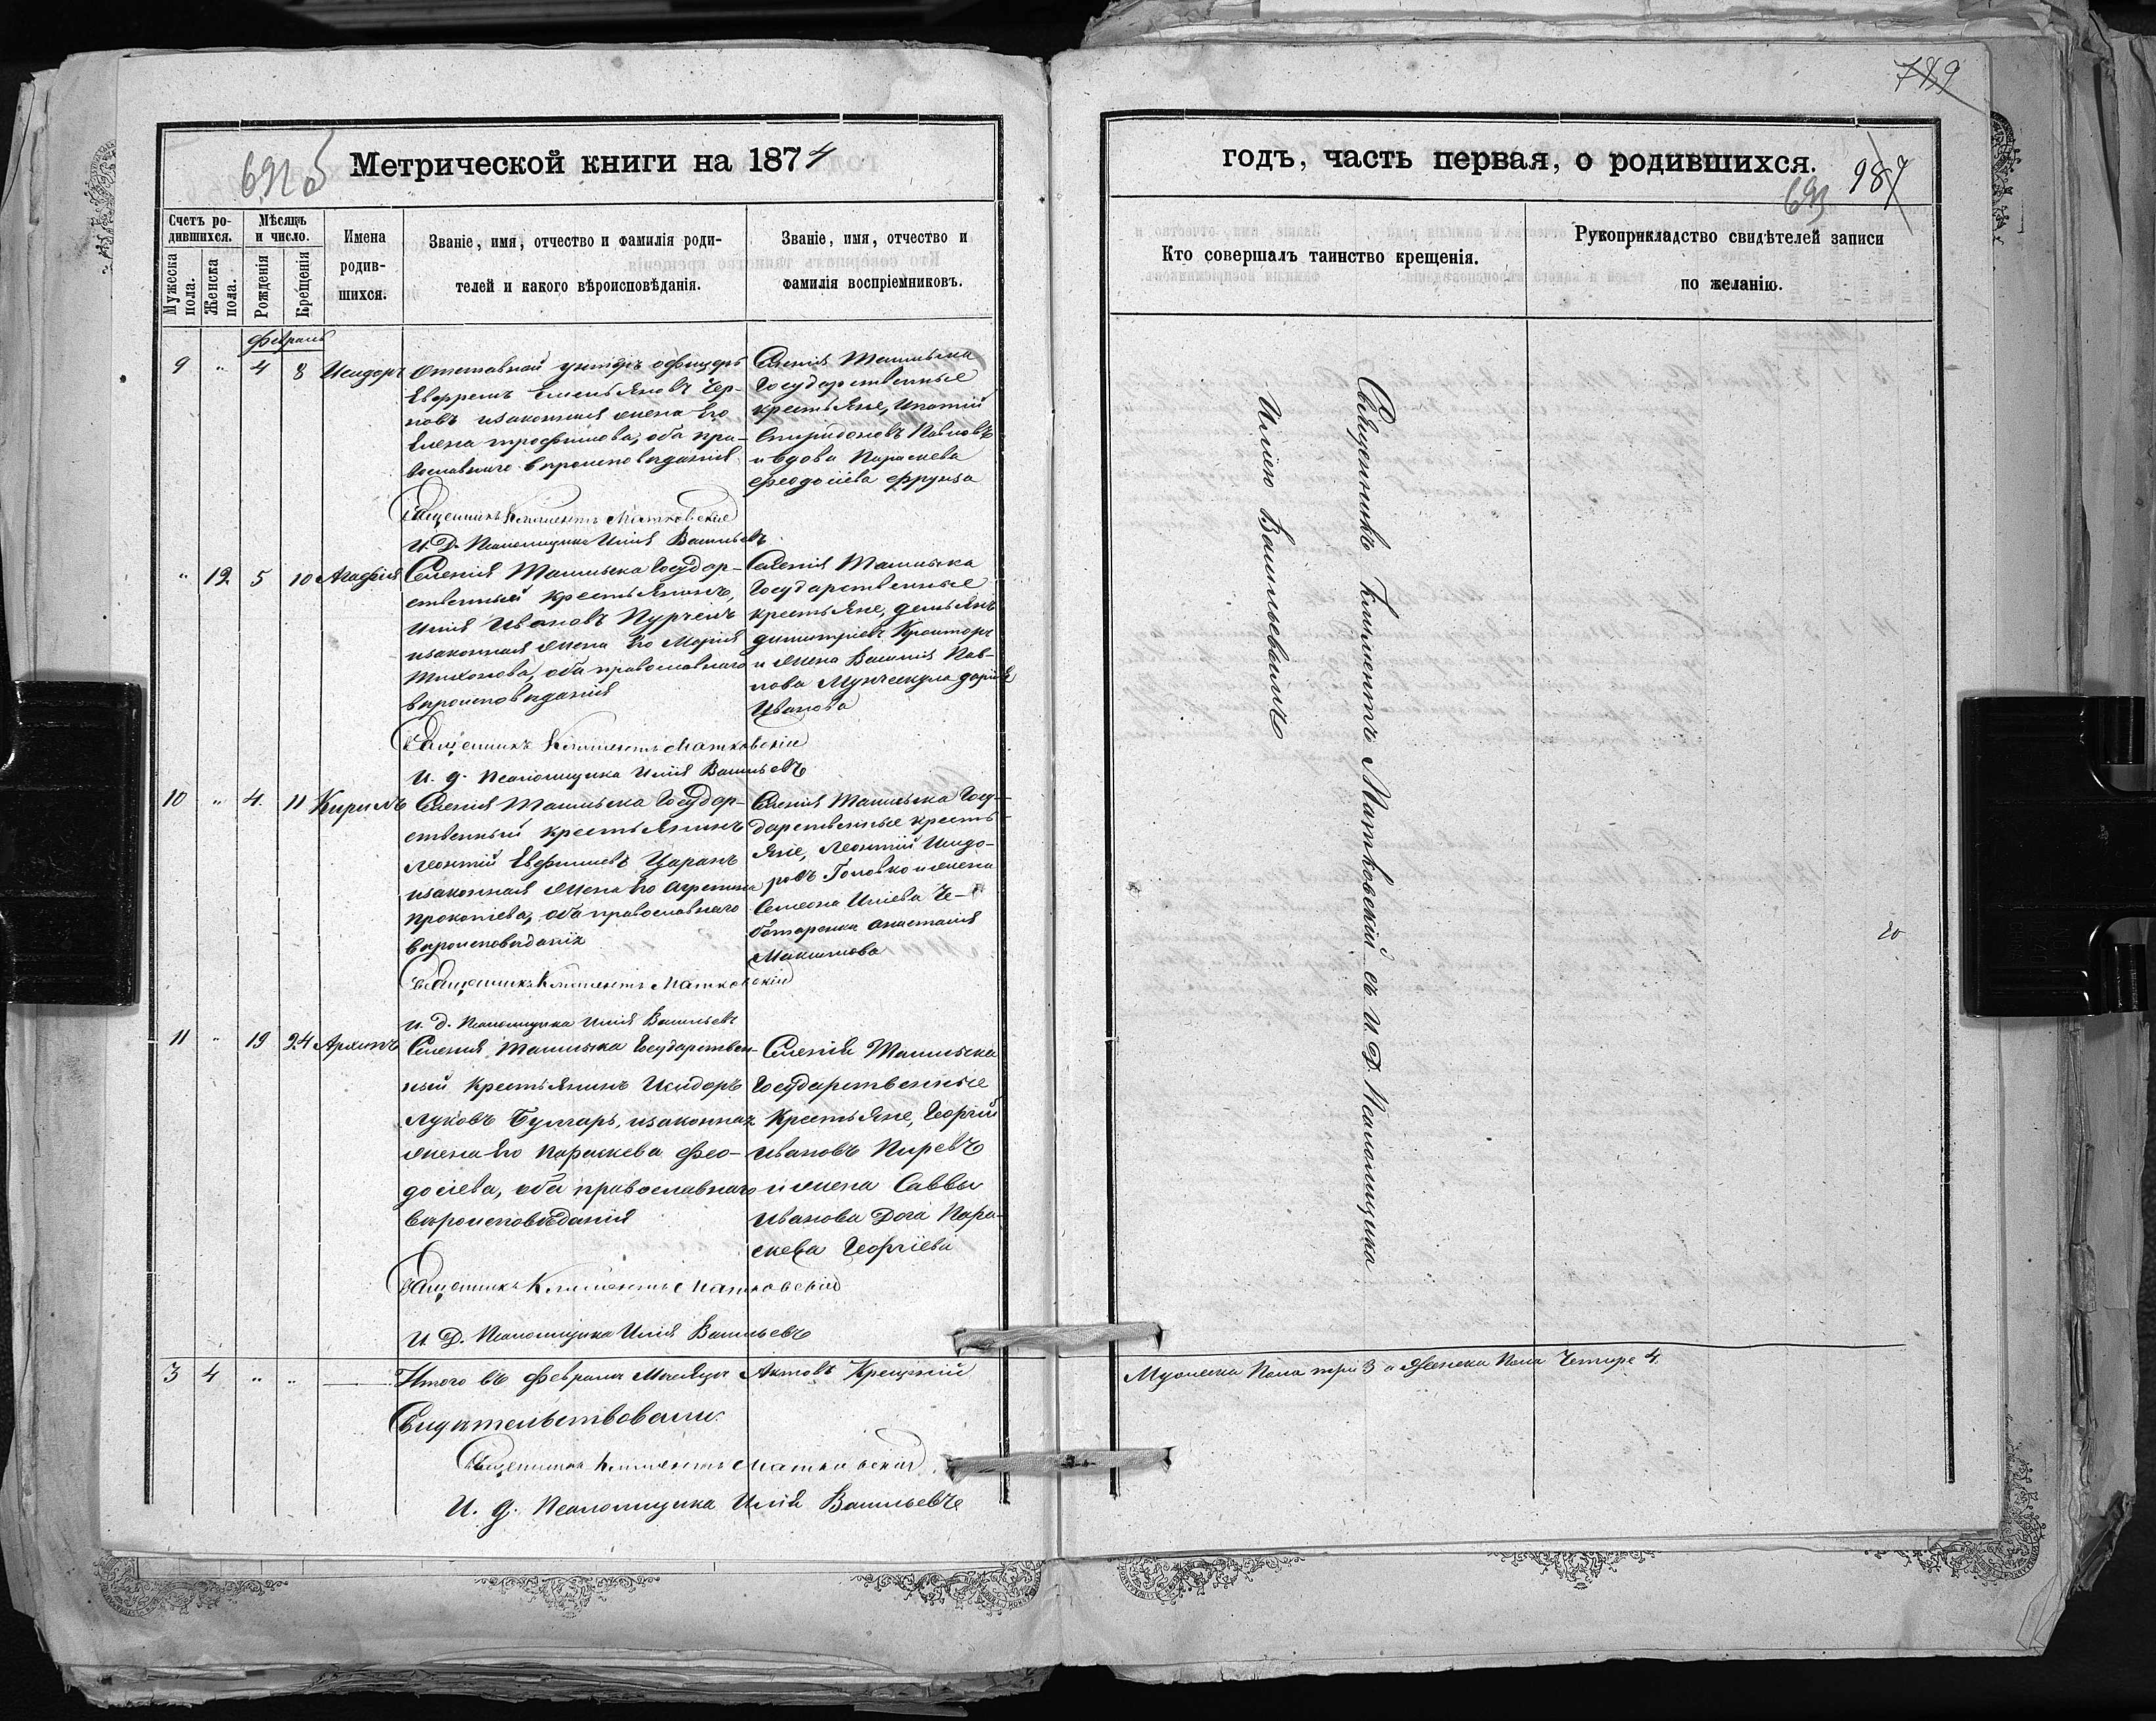 789
692 б
Метрической книги на 1874
Счетъ ро-
дившихся.
Мѣсяцъ
и число.
Мужеска
пола.
Женска
пола.
Рожденія
Крещенія
Имена
родив-
шихся.
Званіе, имя, отчество и фамилія роди-
телей и какого вѣроисповѣданія.
Званіе, имя, отчество и
фамилія воспріемниковъ.
Февраль
9 " 4 8 Исидоръ
Отставной унтеръ офицеръ
Евфремъ Емельяновъ Чер-
новъ изаконная жена Его
Елена трофимова, оба пра-
вославнаго вѣроисповѣданія
Селенія Ташлыка
Государственные
крестьяне, Ипатій
Спиридоновъ Павловъ
и вдова Параскева
феодосіева Фрунза
Священникъ Климентъ Матковскій
И. Д. Псаломщика Илія Васильевъ
" 12 5 10 Агафія
Селенія Ташлыка Государ-
ственный крестьянинъ,
Илія Ивановъ Пурчелъ
изаконная жена Его Марія
Тихонова, оба православнаго
вѣроисповѣданія
Селенія Ташлыка
Государственные
крестьяне, демьянъ
димитріевъ Кроиторъ
и жена Василія Пав-
лова Мунчекула дарія
Иванова
Священникъ Климентъ Матковскій
И. д. Псаломщика Илія Васильевъ
10 " 4. 11 Кирилъ
Селенія Ташлыка Государ-
ственный крестьянинъ
Леонтій Евфиміевъ Царанъ
изаконная жена Его Агрепина
Прокопіева, оба православнаго
вѣроисповѣданія
Селенія Ташлыка Госу-
дарственные кресть-
яне, Леонтій Исидо-
ровъ Головко и жена
Семеона Иліева Че-
ботаренка Анастасія
Максимова
Священникъ Климентъ Матковскій
И. д. Псаломщика Илія Васильевъ
11 " 19 24 Архипъ
Селенія Ташлыка Государствен-
ный крестьянинъ Исидоръ
Луковъ Булгаръ, изаконная
жена Его Параскева Фео-
досіева, оба православнаго
вѣроисповѣданія
Селенія Ташлыка
Государственные
Крестьяне, Георгій
Ивановъ Пиревъ
и жена Саввы
Иванова Дога Пара-
скева Георгіева
Священникъ Климентъ Матковскій
И. Д. Псаломщика Илія Васильевъ
3 4 " "
Итого въ Февралѣ Мѣсяцѣ Актовъ Крещеній
Свидѣтельствовали:
Священникъ Климентъ Матковскій
И. д. Псаломщика Илія Васильевъ
годъ, часть первая, о родившихся.
987
693
Кто совершалъ таинство крещенія.
Рукоприкладство свидѣтелей записи
по желанію.
Священникъ Климентъ Матковскій съ И. Д. Псаломщика
Иліею Васильевымъ
20
Мужеска Пола три 3 а Женска Пола Четире 4.